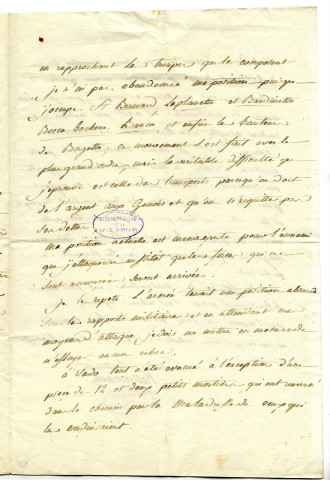 en rapprochant les troupes qui la composent
je n'ai pas abandonné ma position puisque
j'occupe St Bernard la planette et Bardinetto
Rocca barbena, Banco, et enfin les hauteurs
de Bagetto, ce mouvement s'est fait avec le
plus grand ordre, mais la véritable difficulté que
j'éprouve est celle des transports parcequ'on doit
de l'argent aux Genois et qu'on n'acquitte pas
ses dettes
ma position actuelle est menaçante pour l'ennemi
que j'attaquerai sitôt que les forces qui me
sont annoncées seront arrivées.
je le repete l'armée tenait une position
sous les rapports militaires et en attendant une
plus grande attaque je dois me mettre en mesure de
n'essuyer aucun echec.
à Vado tout a été evacué à l'exception d'une
piece de 12 et deux petits mortiers qui ont
dans le chemin par la maladresse de ceux qui
les conduisaient.